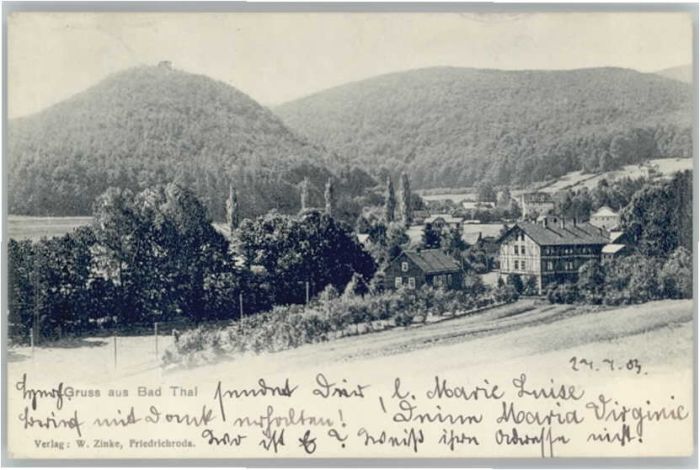 24.7.03.
Gruss aus Bad Thal sendet Dir, l. Marie Luise
Brief mit Dank erhalten! Deine Maria Virginie
Verlag: W. Zinke, Friedrichroda. Wo ist E? Weiß ihre Adresse nicht.